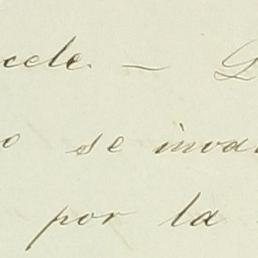 cele. — L
o se inva
por la